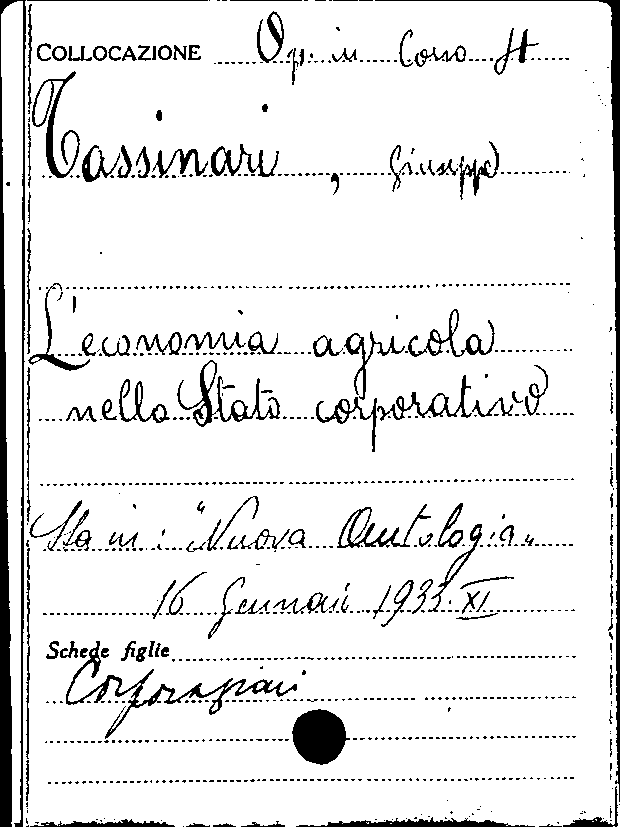 COLLOCAZIONE Op. in Corso
Tassinari, Giuseppe
L'economia agricola
nello Stato corporativo
Sta in: "Nuova Antologia„
16 Gennaio 1933. XI
Schede figlie
Corporazioni